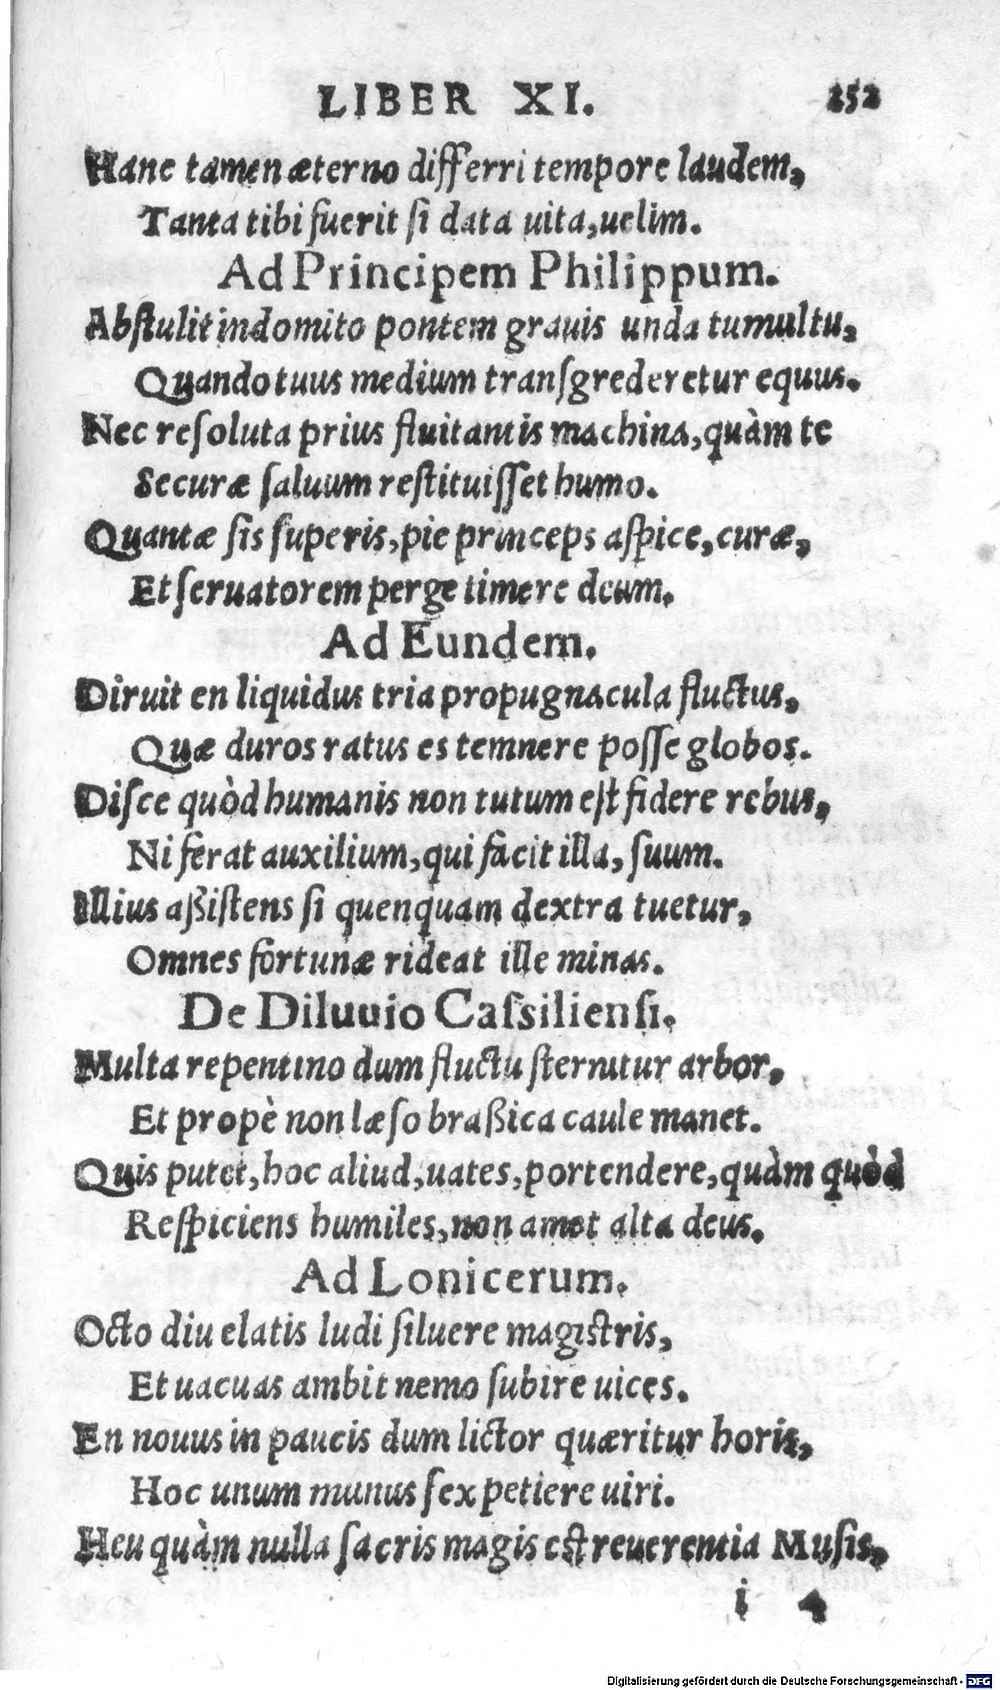 LIBER XI. 252
Hanc tamen æterno differri tempore laudem,
Tanta tibi fuerit ſi data uita, uelim.
Ad Principem Philippum.
Abſtulit indomito pontem grauis unda tumultu,
Quando tuus medium tranſgrederetur equus.
Nec reſoluta prius fluitantis machina, quàm te
Securæ ſaluum reſtituiſſet humo.
Quantæ ſis ſuperis, pie princeps aſpice, curæ,
Et ſeruatorem perge timere deum.
Ad Eundem.
Diruit en liquidus tria propugnacula fluctus,
Quæ duros ratus es temnere poſſe globos.
Diſce quòd humanis non tutum eſt fidere rebus,
Ni ferat auxilium, qui facit illa, ſuum.
Illius aßiſtens ſi quenquam dextra tuetur,
Omnes fortunæ rideat ille minas.
De Diluuio Caſsilienſi.
Multa repentino dum fluctu ſternitur arbor,
Et propè non læſo braßica caule manet.
Quis putet, hoc aliud, uates, portendere, quàm quòd
Reſpiciens humiles, non amet alta deus.
Ad Lonicerum.
Octo diu elatis ludi ſiluere magiſtris,
Et uacuas ambit nemo ſubire uices.
En nouus in paucis dum lictor quæritur horis,
Hoc unum munus ſex petiere uiri.
Heu quàm nulla ſacris magis eſt reuerentia Muſis,
i 4
Digitalisierung gefördert durch die Deutsche Forschungsgemeinschaft - DFG